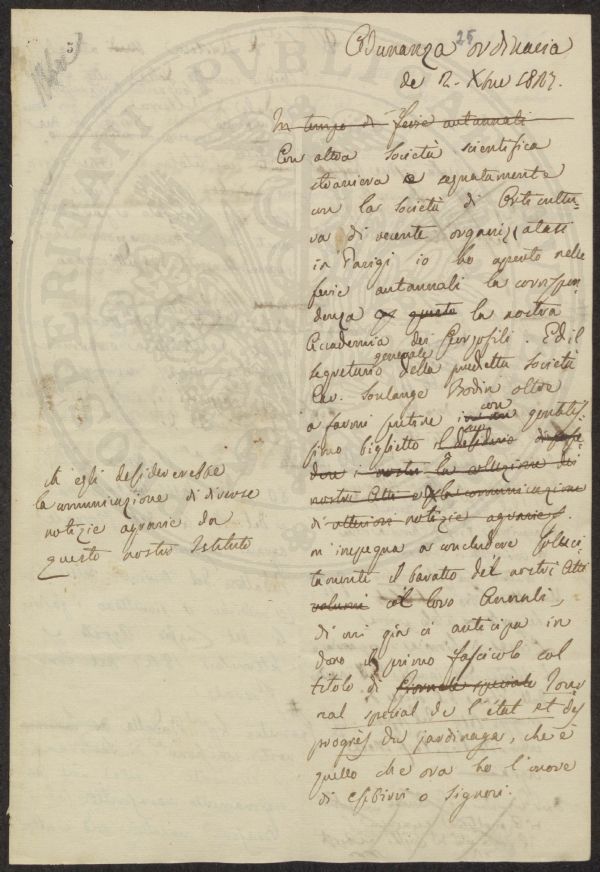 25
Adunanza ordinaria
de 2. Xbre 1827.
In tempo di ferie autunnali
Con altra Società scientifica
straniera e segnatamente
con la Società di Orticultu-
ra di recente organizzatasi
in Parigi io ho aperto nelle
ferie autunnali la corrispon-
denza questo la nostra
Accademia dei Georgofili. Ed il
segretario generale della predetta Società
Cav. Soulange Bodin oltre
a farmi sentire con gentilis-
simo biglietto il desiderio
nostri la collezione dei
nostri Atti e la comunicazione
di ulteriori notizie agrarie
m'impegna a concludere solleci-
tamente il baratto dei nostri Atti
volumi col loro Annali,
di cui già ci anticipa in
dono il primo fascicolo col
titolo di Giornale speciale Jour-
nal special de l'état et des
progrès du jardinage, che è
quello che ora ho l'onore
di esibirvi o Signori.
ch'egli desidererebbe
la comunicazione di diverse
notizie agrarie da
questo nostro Istituto